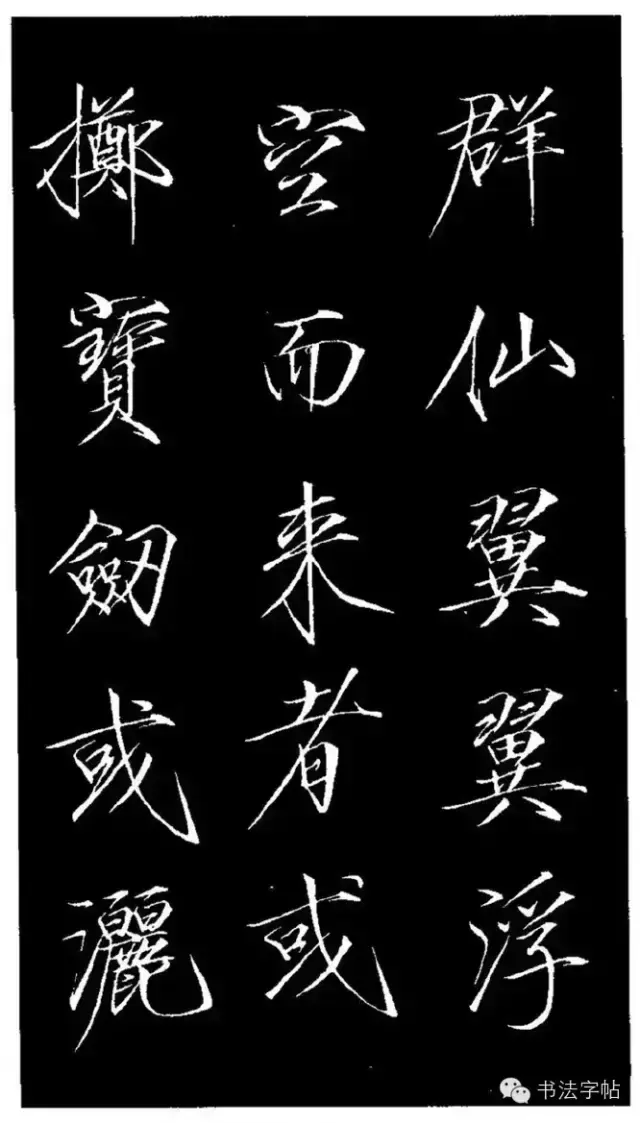 群仙翼翼浮
空而来者或
擲寶劒或灑
书法字帖